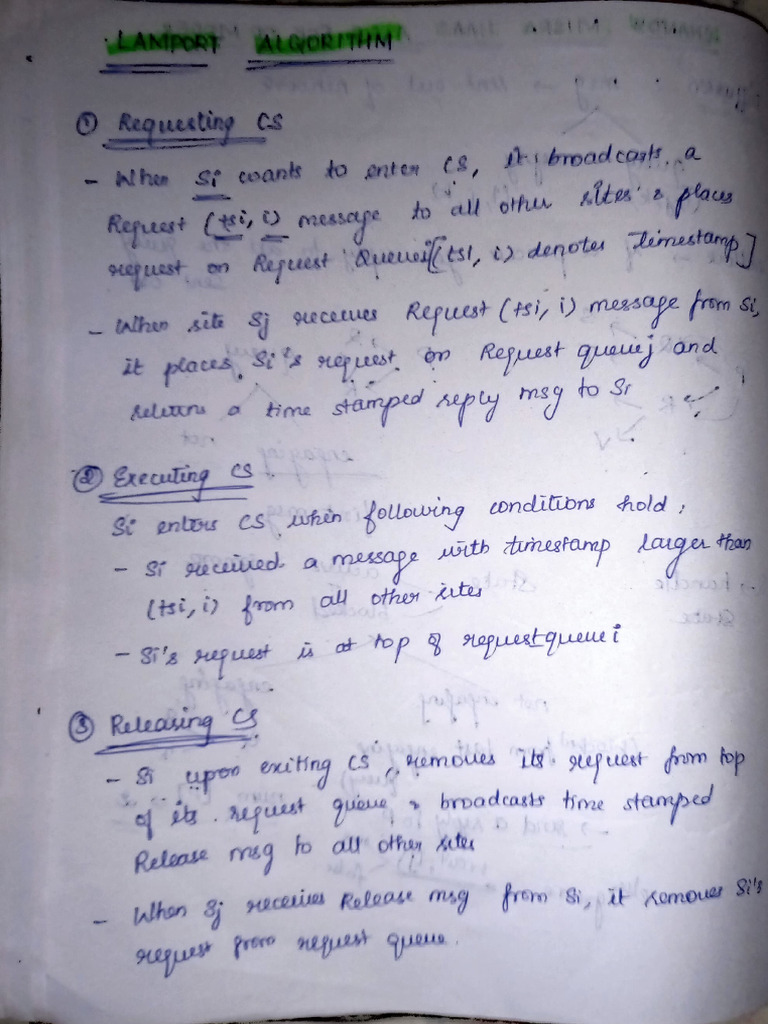 LAMPORT ALGORITHM
① Requesting CS
- When Si wants to enter CS, it broadcasts a
Request (tsi, i) message to all other sites & places
request on Request Queuei [(tsi, i) denotes Timestamp]
- When site Sj receives Request (tsi, i) message from Si,
it places Si's request on Request queuej and
returns a time stamped reply msg to Si
② Executing CS
Si enters CS when following conditions hold:
- Si received a message with timestamp larger than
(tsi, i) from all other sites
- Si's request is at top of request queue i
③ Releasing CS
- Si upon exiting CS, removes its request from top
of its request queue & broadcasts time stamped
Release msg to all other sites
- When Sj receives Release msg from Si, it removes Si's
request from request queue.